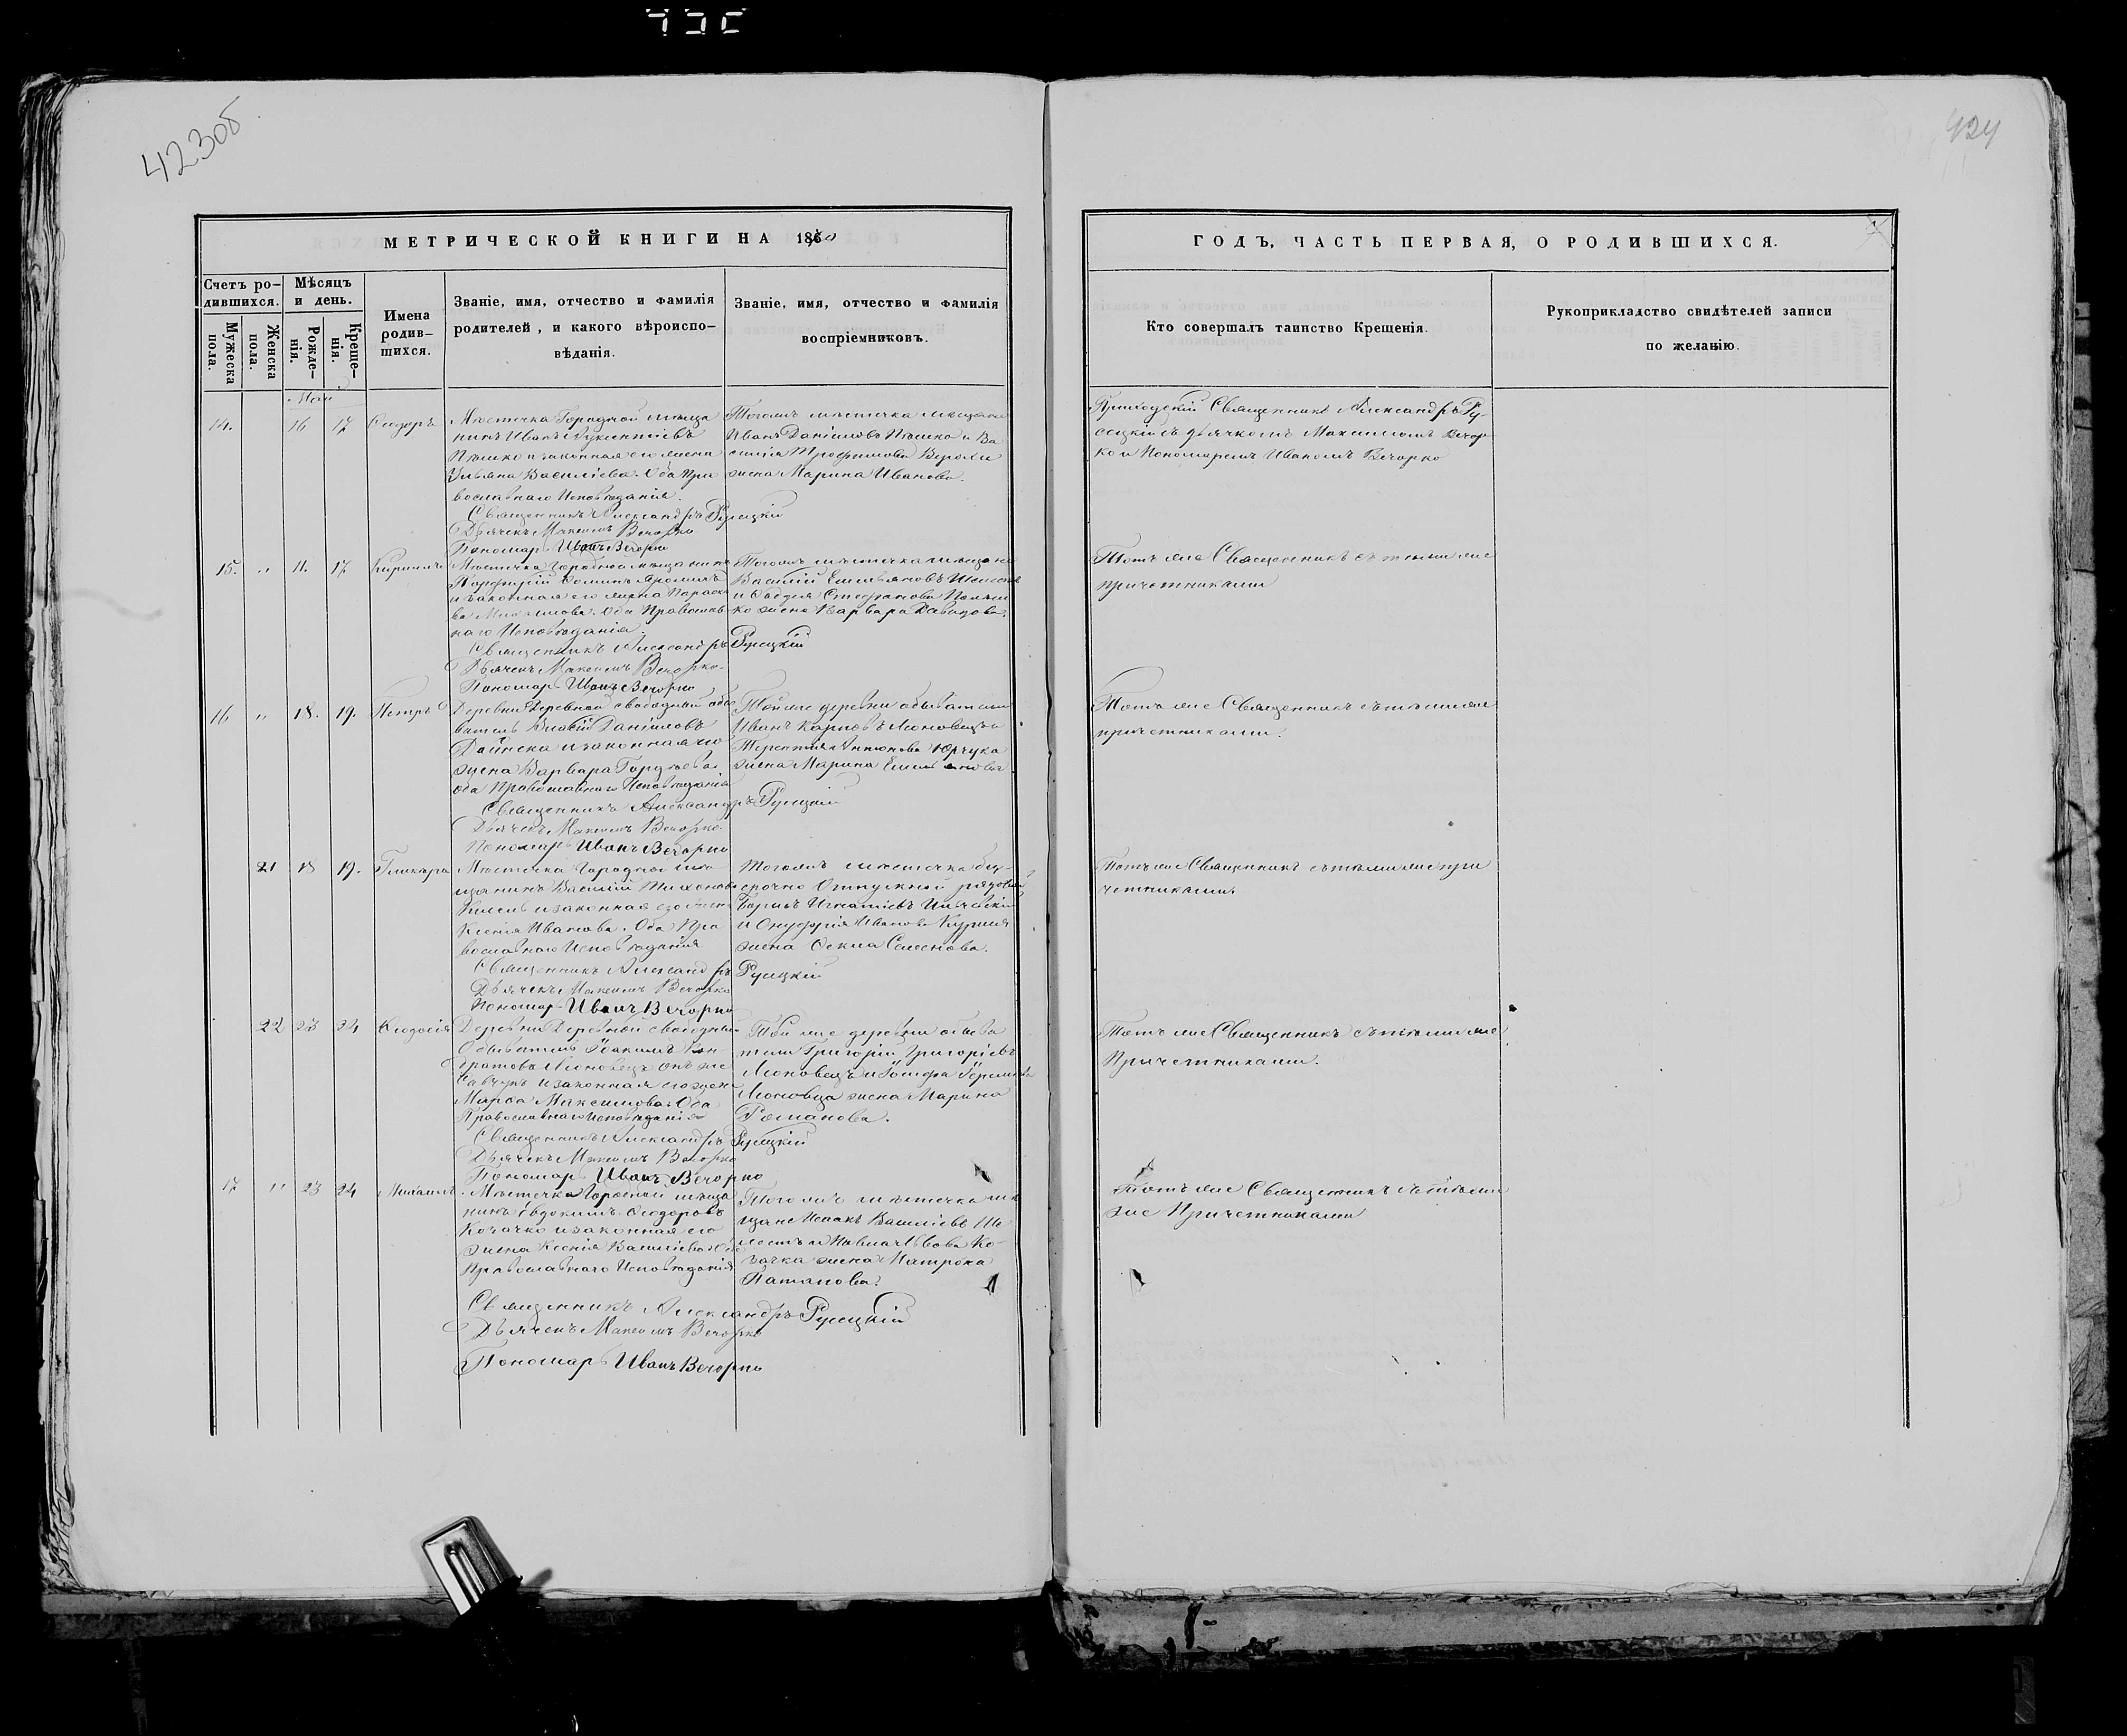 423об
424
МЕТРИЧЕСКОЙ КНИГИ НА 1860
ГОДЪ, ЧАСТЬ ПЕРВАЯ, О РОДИВШИХСЯ.
Счетъ ро-
дившихся.
Мужеска
пола.
Женска
пола.
Мѣсяцъ
и день.
Рожде-
нія.
Креще-
нія.
Имена
родив-
шихся.
Званіе, имя, отчество и фамилія
родителей, и какого вѣроиспо-
вѣданія.
Званіе, имя, отчество и фамилія
воспріемниковъ.
Кто совершалъ таинство Крещенія.
Рукоприкладство свидѣтелей записи
по желанію.
Маи
14. 16 17 Ѳеодоръ
Мѣстечка Городной мѣща
нинъ Иванъ
и законная его жена
Ульяна Василіева. Оба Пра
вославнаго Исповѣданія.
Священникъ Александръ Русецкій
Дьячекъ Максимъ Вечорко
Пономарь Иванъ Вечорко
Тогожъ мѣстечка мѣщани
Иванъ Даніиловъ и Ва
силія Трофимова
жена Марина Иванова.
Приходскій Священникъ Александръ Ру-
сецкій съ дьячкомъ Максимомъ Вечор
ко и Пономаремъ Иваномъ Вечорко
15. " 11. 17 Кириллъ
Мѣстечка Городной мѣщанинъ
Порфирій
и законная его жена Параске
ва Оба Православ
наго Исповѣданія.
Священникъ Александръ Русецкій
Дьячекъ Максимъ Вечорко.
Пономарь Иванъ Вечорко
Тогожъ мѣстечка мѣщане
Василій Емельяновъ
и Стефанова
ко жена Варвара
Тотъ же Священникъ съ тѣми же
причетниками
16 " 18. 19. Петръ
Деревни Деревной свободный обы
ватель Власій Даніиловъ
и законная его
жена Варвара Гордѣева
оба Православнаго Исповѣданія
Священникъ Александръ Русецкій
Дьячекъ Максимъ Вечорко.
Пономарь Иванъ Вечорко
Той же деревни обыватели
Иванъ Карповъ Леоновецъ и
Терентія Антонова Юрчука
жена Марина Емельянова
Тотъ же Священникъ съ тѣми же
причетниками.
21 18 19. Гликера
Мѣстечка Городной мѣ
щанинъ Василій Тихоновъ
и законная его жена
Ксенія Иванова. Оба Пра
вославнаго Исповѣданія
Священникъ Александръ Русецкій
Дьячекъ Максимъ Вечорко
Пономарь Иванъ Вечорко
Тогожъ мѣстечка без-
срочно Отпускной рядовой
Борисъ Игнатіевъ
и Онуфрія Иванова
жена Семенова.
Тотъ же Священникъ съ тѣми же при
четниками.
22 23 24 Ѳеодосія
Деревни Деревной свободный
Обыватель Іоакимъ Кон-
дратовъ Леоновецъ онъ же
Савчукъ и законная его жена
Марѳа Максимова. Оба
Православнаго Исповѣданія
Священникъ Александръ Русецкій
Дьячекъ Максимъ Вечорко
Пономарь Иванъ Вечорко
Той же деревни обыва
тели Григорій Григоріевъ
Леоновецъ и Іосифа
Леоновца жена Марина
Романова.
Тотъ же Священникъ съ тѣми же
Причетниками.
17 " 23 24 Михаилъ
Мѣстечка Городной мѣща
нинъ Евдокимъ Ѳеодоровъ
Козачко и законная его
жена Ксенія Василіева Оба
Православнаго Исповѣданія
Священникъ Александръ Русецкій
Дьячекъ Максимъ Вечорко
Пономарь Иванъ Вечорко
Тогожъ мѣстечка мѣ
щане Исаакъ Василіевъ Ше
лестъ и Львова Ко-
зачка жена Матрона
Патапова.
Тотъ же Священникъ съ тѣми
же Причетниками